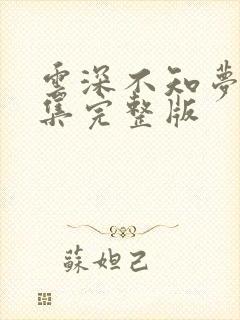 雲深不知夢
集完整版
蘇妲己